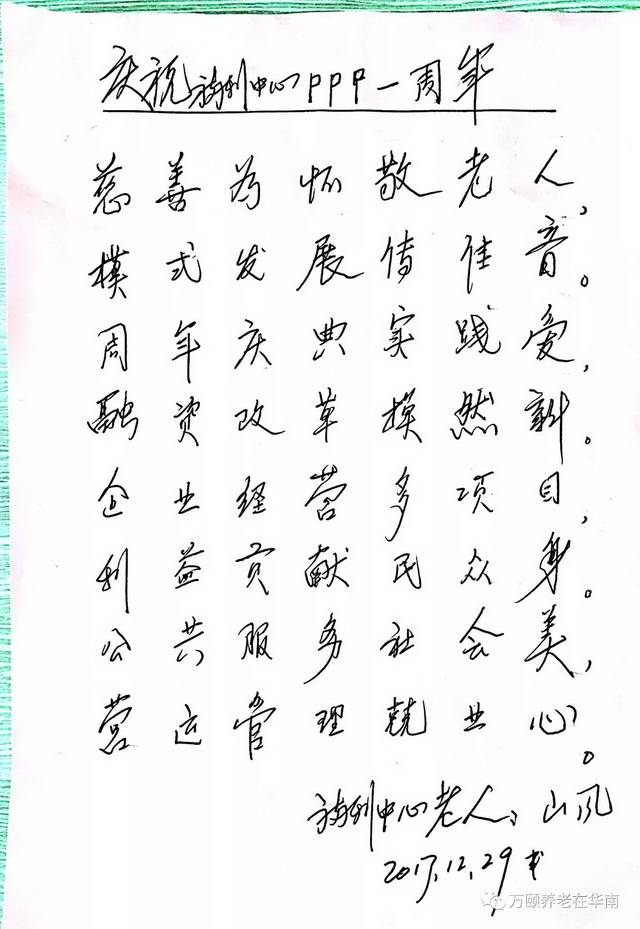 庆祝福利中心PPP一周年
慈善为怀敬老人，
模式发展传佳音。
周年庆典实践爱，
融资改革换然新。
企业经营多项目，
利益贡献民众身。
公共服务社会美，
营运管理兢业心。
福利中心老人：山风
2017.12.29书
万颐养老在华南